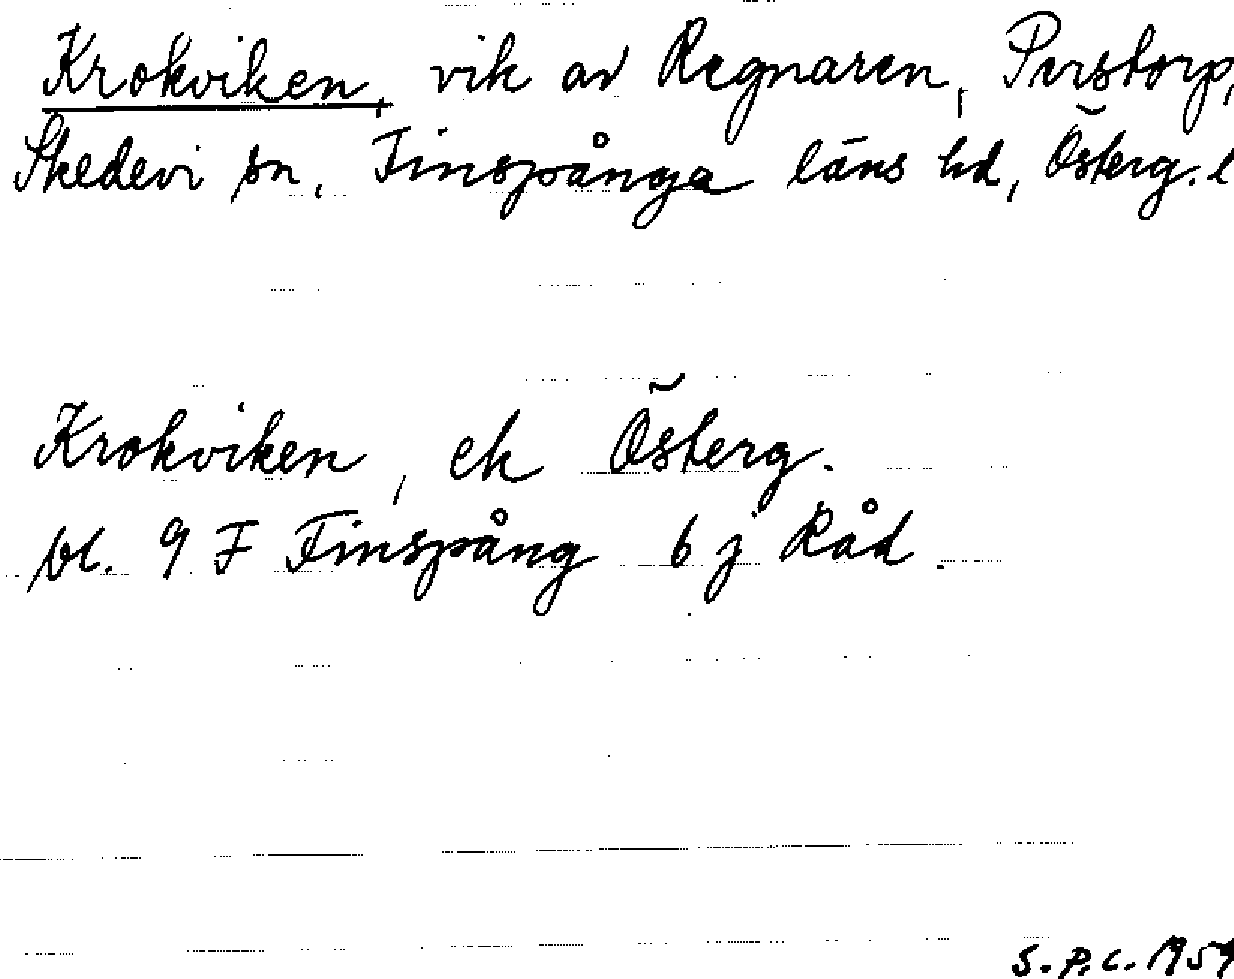 Krokviken, vik av Regnaren, Perstorp,
Skedevi sn, Finspånga läns hd, Österg. l
Krokviken, ek Österg.
bl. 9 F Finspång 6 j Råd.
S.P.C. 1959